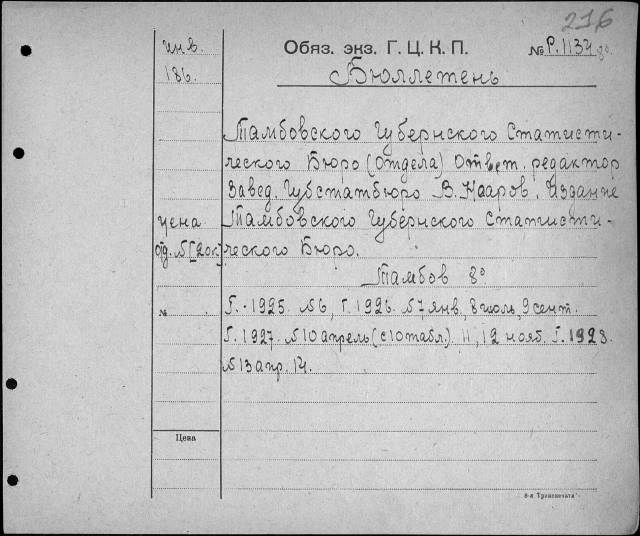 216
инв.
186.
Обяз. экз. Г. Ц. К. П.
№ Р. 1134 до.
Бюллетень
Тамбовского Губернского Статисти-
ческого Бюро (Отдела) Ответ. редактор
Завед. Губстатбюро В. Нааров. Издание
Тамбовского Губернского Статисти-
ческого Бюро.
цена
отд. № [20к]
Тамбов 8°
Г. - 1925. №6, Г. 1926. №7 янв, 8 июль, 9 сент.
Г. 1927. №10 апрель (с 10 табл.) 11, 12 нояб. Г. 1928.
№13 апр. 14.
№
Цена